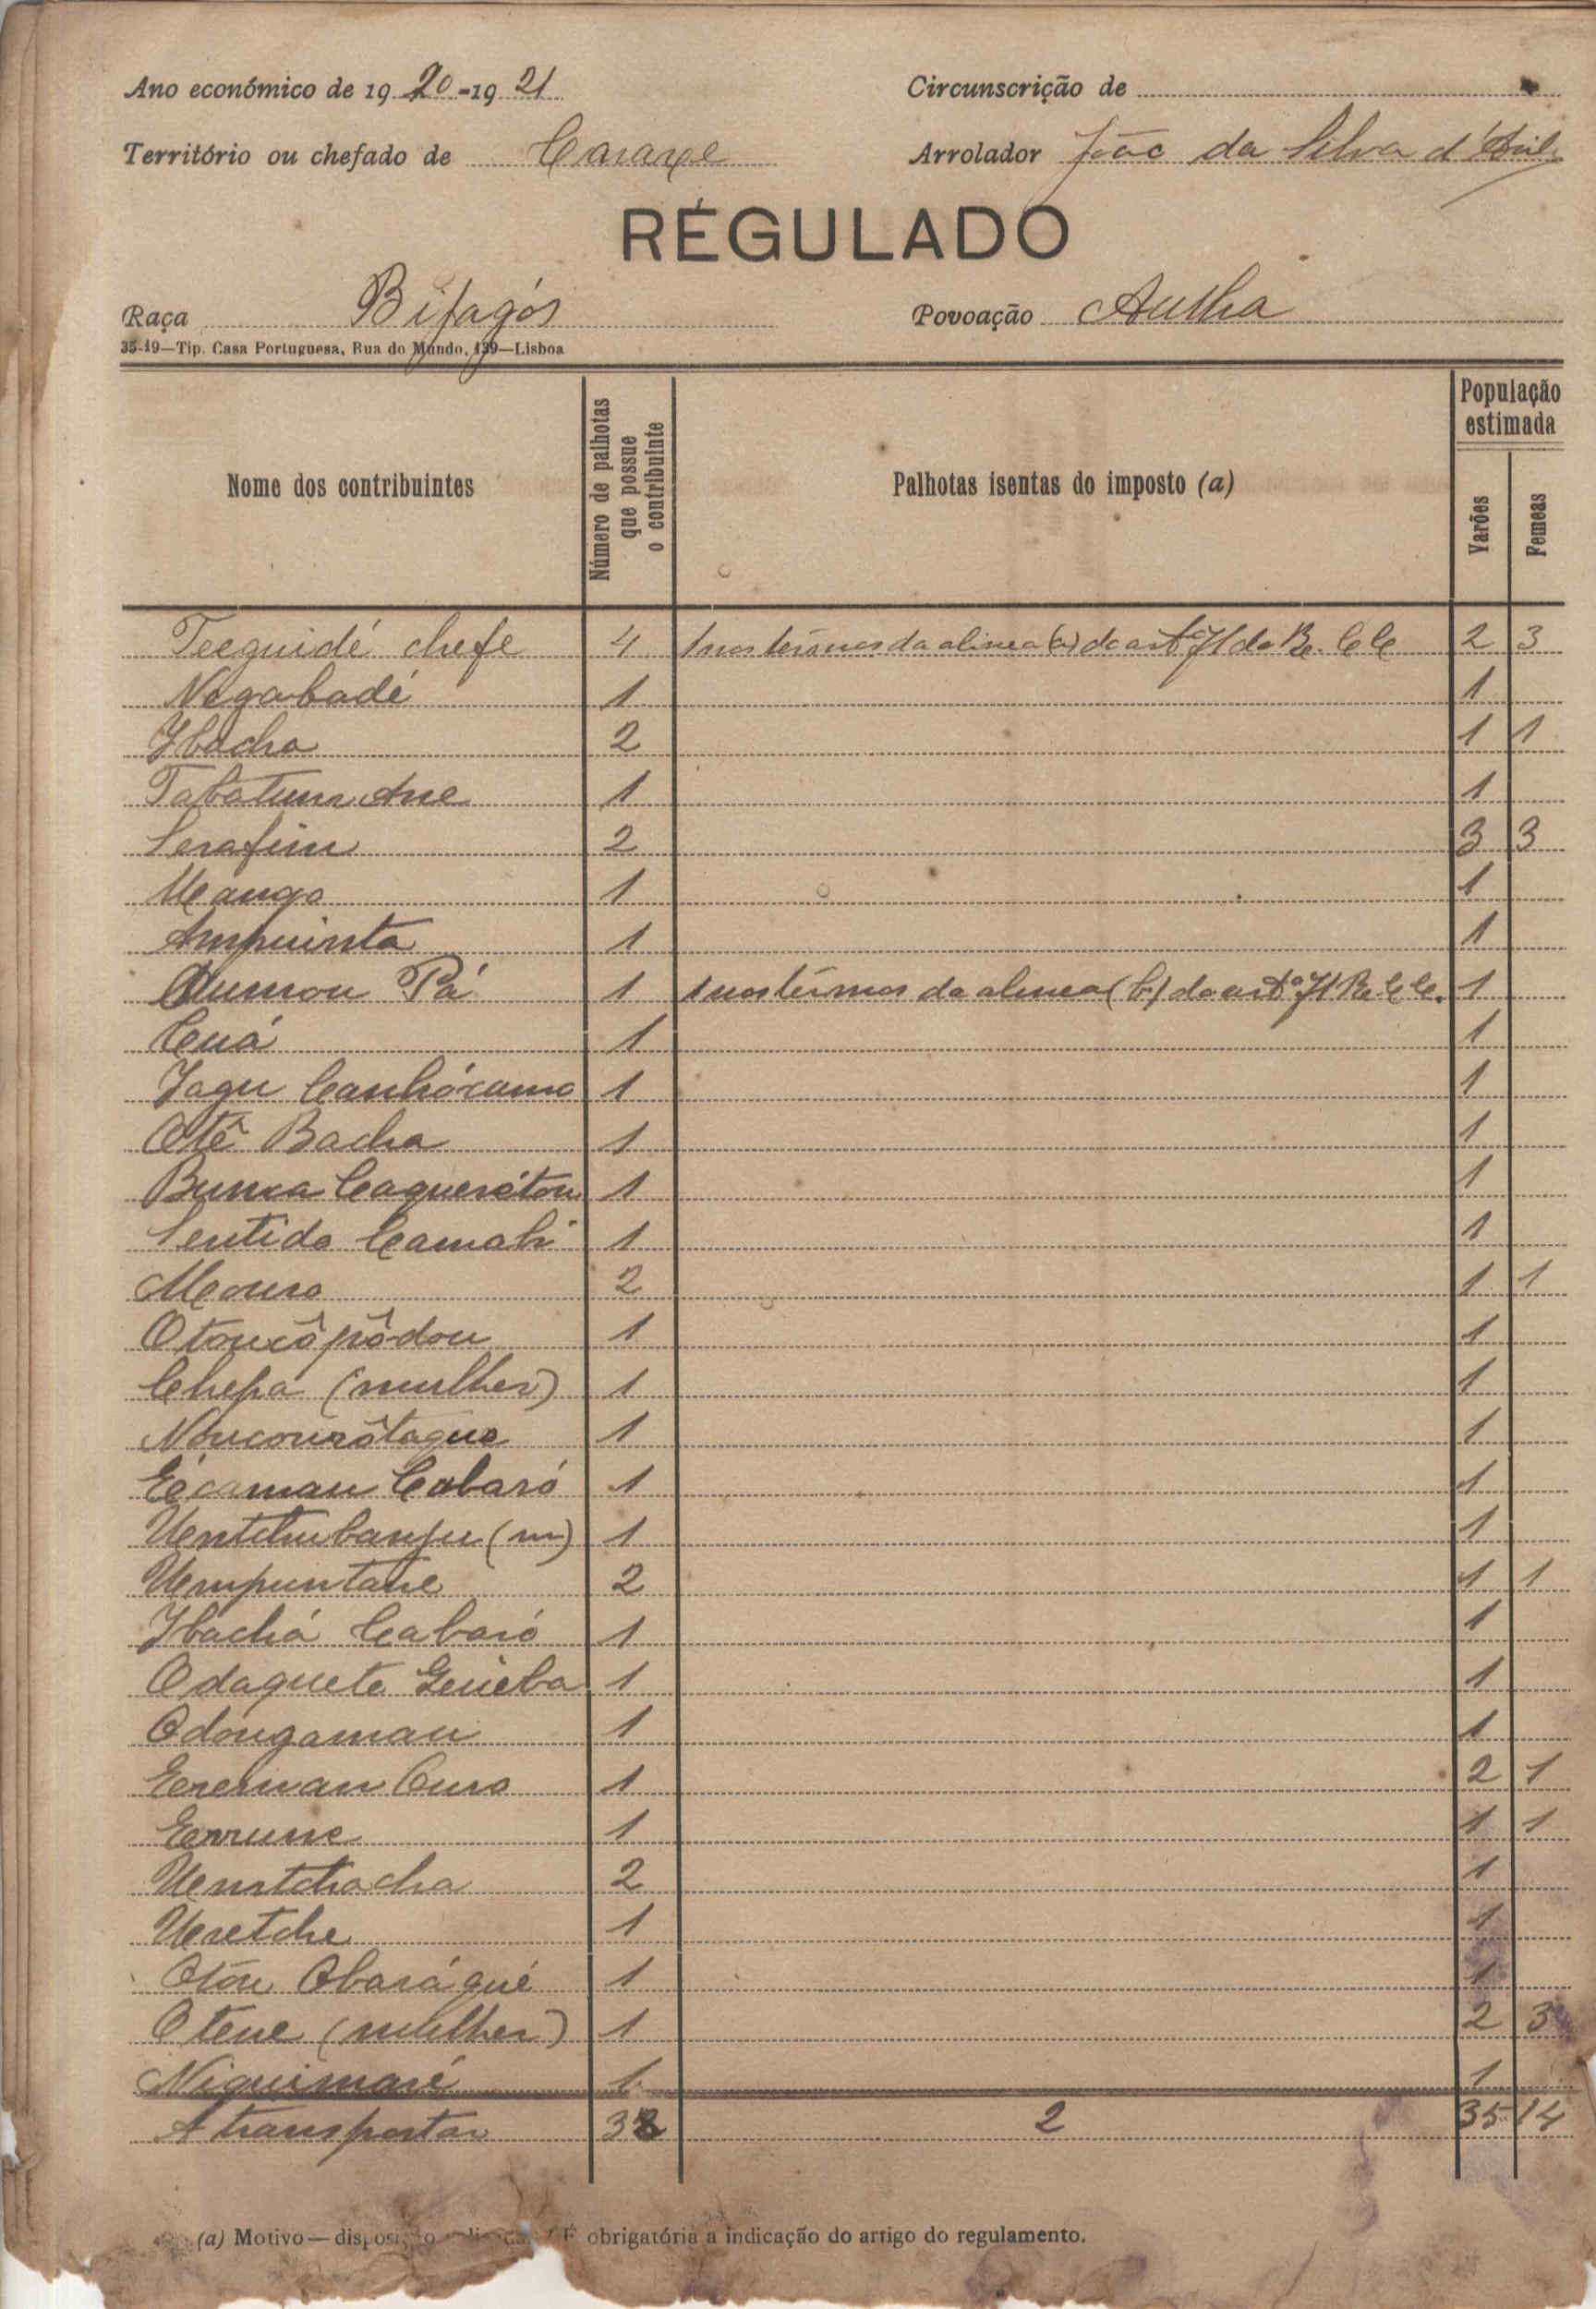 Ano económico de 1920-1921
Circunscrição de
Território ou chefado de Cararxe
Arrolador João da Silva d'
RÉGULADO
Raça Bijagós
Povoação
35-19—Tip. Casa Portuguesa, Rua do Mundo, 139—Lisboa
Nome dos contribuintes
Número de palhotas que possue o contribuinte
Palhotas isentas do imposto (a)
População estimada
Varões
Femeas
Teeguidé chefe 4 1 nos têrmos da alinea (a) do artº 71 do R. C C 2 3
Negabadé 1 1
Ibacha 2 1 1
Tabatum Ane 1 1
Serafim 2 3 3
Mango 1 1
Ampuinta 1 1
Ounou Pá 1 1 nos têrmos da alinea (b) do artº 71 R. C C. 1
Cuá 1 1
Jagu Canhóramo 1 1
Otê Bacha 1 1
Bunca Caquerétou 1 1
Sentido Camabi 1 1
Mouro 2 1 1
Otoucô pôdou 1 1
Chepa (mulher) 1 1
Noucourôtague 1 1
Eécamau Cabaró 1 1
Uentchubanju (m) 1 1
Uempuntane 2 1 1
Ibachá Cabaró 1 1
Odaquete Gueba 1 1
Odougamau 1 1
Eoremau Ouro 1 2 1
Eorrune 1 1 1
Uentchacha 2 1
Uretche 1 1
Otou Obaráqué 1 1
Otene (mulher) 1 2 3
Niquimaré 1 1
A transportar 38 2 35 14
(a) Motivo—disposição É obrigatória a indicação do artigo do regulamento.